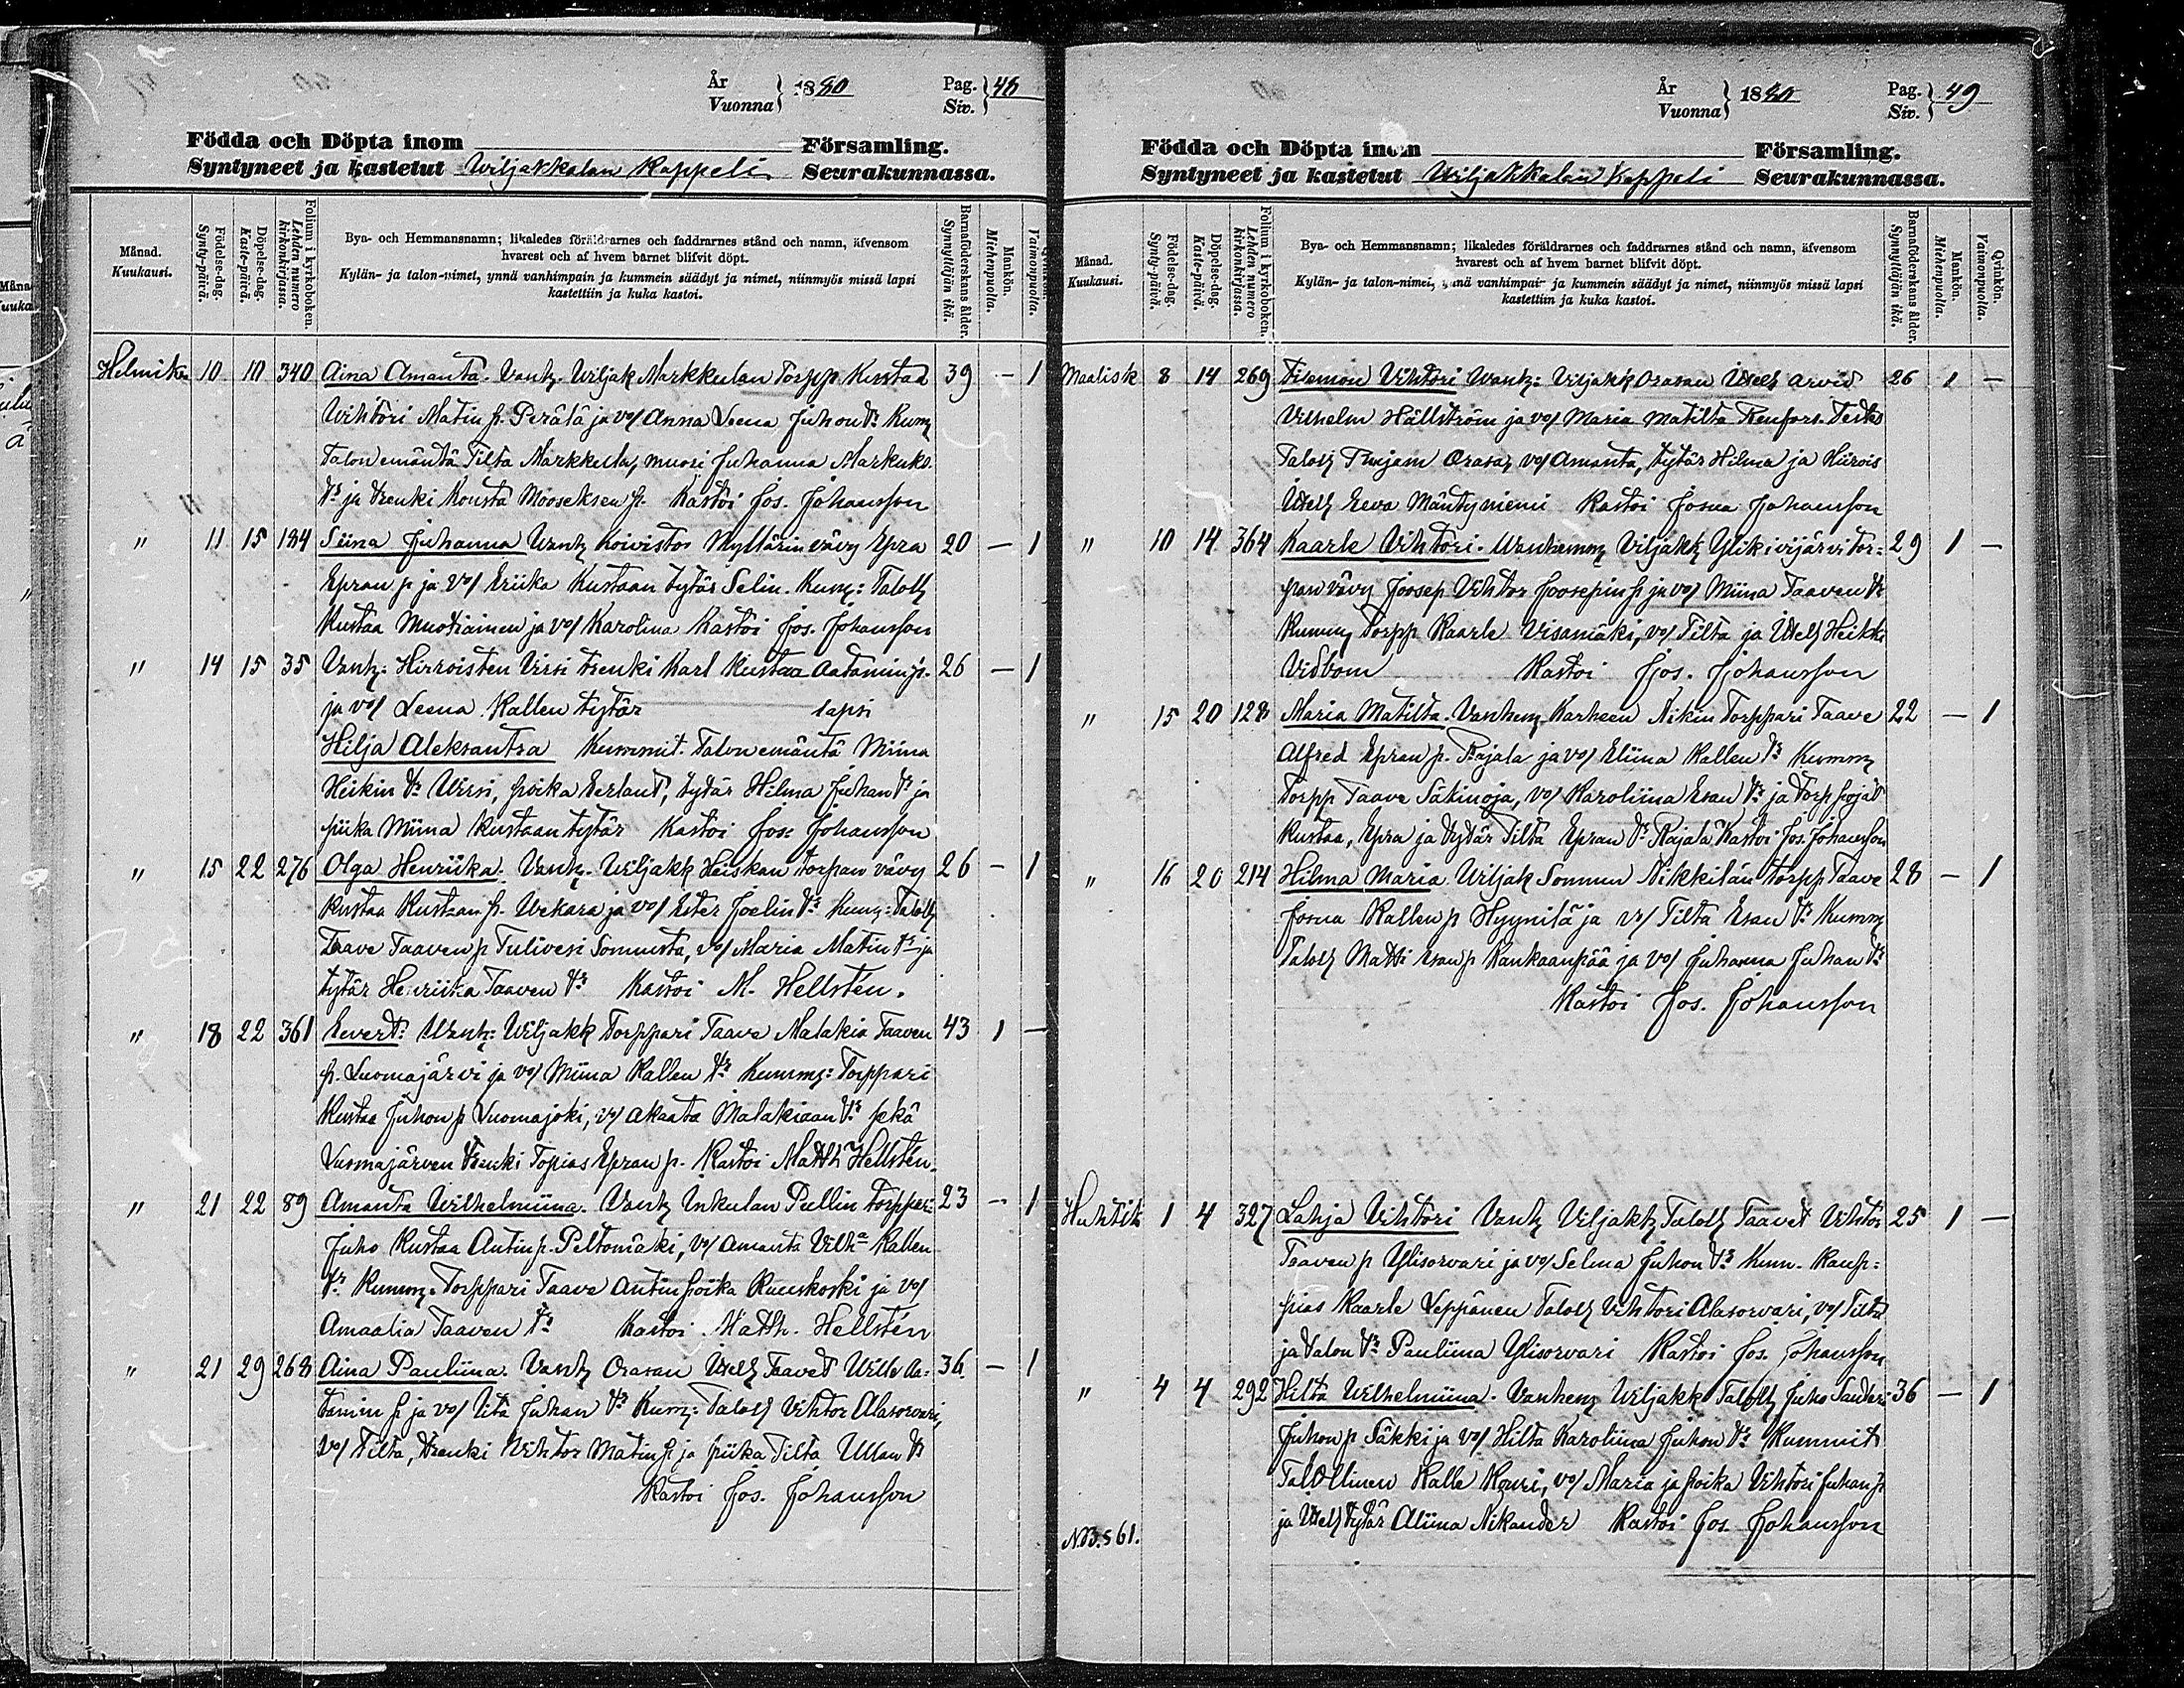 År
Vuonna } 1880 Pag. Siv. } 48
Födda och Döpta inom Församling.
Syntyneet ja kastetut Wiljakkalan Kappeli Seurakunnassa.
Månad. Kuukausi.
Födelse-dag. Synty-päivä.
Döpelse-dag. Kaste-päivä.
Folium i kyrkoboken. Lehden numero kirkonkirjassa.
Bya- och Hemmansnamn; likaledes föräldrarnes och faddrarnes stånd och namn, äfvensom
hvarest och af hvem barnet blifvit döpt.
Kylän- ja talon-nimet, ynnä vanhimpain ja kummein säädyt ja nimet, niinmyös missä lapsi
kastettiin ja kuka kastoi.
Barnaföderskans ålder. Synnyttäjän ikä.
Mankön. Miehenpuolia.
Qvinkön. Vaimonpuolia.
Helmik 10 10 340 Aina Amanta. Vanh. Wiljak Markkulan Torpp Kustaa 39 — 1
Wihtori Matin p. Perälä ja vo/ Anna Leena Juhon tr Kum
Talon emäntä Tilta Markkula, muori Juhanna Markuks.
tr ja trenki Kousta Mooseksen p. Kastoi Jos. Johansson
" 11 15 184 Siina Juhanna Vanh Koivistos Myllärin vävy Epra 20 — 1
Epran p ja vo/ Eriika Kustaan tytär Selin. Kum: Taloll
Kustaa Muotiainen ja vo/ Karolina Kastoi Jos. Johansson
" 14 15 35 Vanh: Hirroisten Virsi trenki Karl Kustaa Aataminp. 26 — 1
ja vo/ Leena Kallen tytär lapsi
Hilja Aleksantra Kummit. Talon emäntä Miina
Heikin tr Virsi, poika Eerlant, tytär Hilma Juhan tr ja
piika Miina Kustaan tytär Kastoi Jos: Johansson
" 15 22 276 Olga Henriika. Vanh. Wiljakk Heiskan torpan vävy 26 — 1
Kustaa Kustaan p. Wekara ja vo/ Ester Joelin tr Kum: Taloll
Taave Taaven p Tulivesi Sonnusta, vo/ Maria Matin tr ja
tytär Henriika Taaven tr Kastoi M. Hellstén.
" 18 22 361 Eevert: Vanh: Wiljakk Torppari Taave Malakia Taaven 43 1 —
p. Luomajärvi ja vo/ Miina Kallen tr Kumm: Torppari
Kustaa Juhon p Luomajoki, vo/ Akaata Malakiaan tr sekä
Luomajärven trenki Topias Epran p. Kastoi Matth Hellstén.
" 21 22 89 Amanta Wilhelmiina. Vanh Inkulan Pullin torppari: 23 — 1
Juho Kustaa Antin p. Peltomäki, vo/ Amanta Vilha Kallen
tr Kumm. Torppari Taave Antin poika Ruuskoski ja vo/
Amaalia Taaven tr Kastoi Matth. Hellstén
" 21 29 268 Aina Pauliina. Vanh Orasan Itsell Taavet Wilh Aa- 36 — 1
tamin p ja vo/ Iita Juhan tr Kum: Taloll Vihtor Alasorvari,
vo/ Tilta, trenki Vihtor Matin p ja piika Tilta Ullan tr
Kastoi Jos. Johansson
År
Vuonna } 1880 Pag. Siv. } 49
Födda och Döpta inom Församling.
Syntyneet ja kastetut Wiljakkalan Kappeli Seurakunnassa.
Månad. Kuukausi.
Födelse-dag. Synty-päivä.
Döpelse-dag. Kaste-päivä.
Folium i kyrkoboken. Lehden numero kirkonkirjassa.
Bya- och Hemmansnamn; likaledes föräldrarnes och faddrarnes stånd och namn, äfvensom
hvarest och af hvem barnet blifvit döpt.
Kylän- ja talon-nimet, ynnä vanhimpain ja kummein säädyt ja nimet, niinmyös missä lapsi
kastettiin ja kuka kastoi.
Barnaföderskans ålder. Synnyttäjän ikä.
Mankön. Miehenpuolia.
Qvinkön. Vaimonpuolia.
Maalisk 8 14 269 Filemon Vihtori Vanh: Viljakk Orasan Itsell Arvid 26 1 —
Vilhelm Hällström ja vo/ Maria Matilta Renfors.
Taloll Orasa, vo/ Amanta, tytär Hilma ja
Itsell Eeva Mäntyniemi Kastoi Josua Johansson
" 10 14 364 Kaarle Vihtori. Vanhemm Viljakk Ylikivijärvi Tor- 29 1 —
pan vävy Joosep Vihtor Joosepin p ja vo/ Miina Taaven tr
Kumm, Torpp Kaarle Visamäki, vo/ Tilta ja Itsell Heikki
Vidbom Kastoi Jos. Johansson
" 15 20 128 Maria Matilta. Vanhem Karheen Nikin Torppari Taave 22 — 1
Alfred Epran p. Rajala ja vo/ Eliina Kallen tr Kumm
Torpp Taave Säkinoja, vo/ Karoliina Esan tr ja Torp pojat
Kustaa, Epra ja tytär Tilta Epran tr Rajala Kastoi Jos. Johansson
" 16 20 214 Hilma Maria. Wiljak Sonnun Nikkilän torpp Taave 28 — 1
Josua Kallen p Hyynilä ja vo/ Tilta Esan tr Kumm
Taloll Matti Esan p Kankaanpää ja vo/ Juhanna Juhan tr
Kastoi Jos. Johansson
Huhtik 1 4 327 Lahja Vihtori Vanh Viljakk Taloll Taavet Vihtor 25 1 —
Taaven p Ylisorvari ja vo/ Selma Juhon tr Kum. Kaup-
pias Kaarle Leppänen Taloll Vihtori Alasorvari, vo/ Tilta
ja talon tr Pauliina Ylisorvari Kastoi Jos. Johansson
" 4 4 292 Hilta Wilhelmiina. Vanhem Wiljakk Taloll Juho Santeri 36 — 1
Juhon p Säkki ja vo/ Hilta Karoliina Juhon tr Kummit
Talollinen Kalle Kouri, vo/ Maria ja poika Vihtori Juhan p
ja Itsell tytär Aliina Nikander Kastoi Jos. Johansson
N.B. s 61.